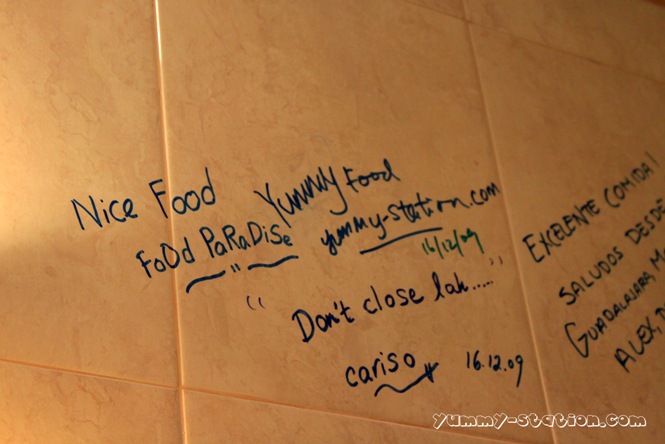 Nice Food
FoOd PaRaDiSe
Yummy Food
yummy-station.com
16/12/09
"Don't close lah....."
cariso
16.12.09
EXCELENTE COMIDA!
SALUDOS DESDE
GUADALAJARA,
ALEX,
yummy-station.com